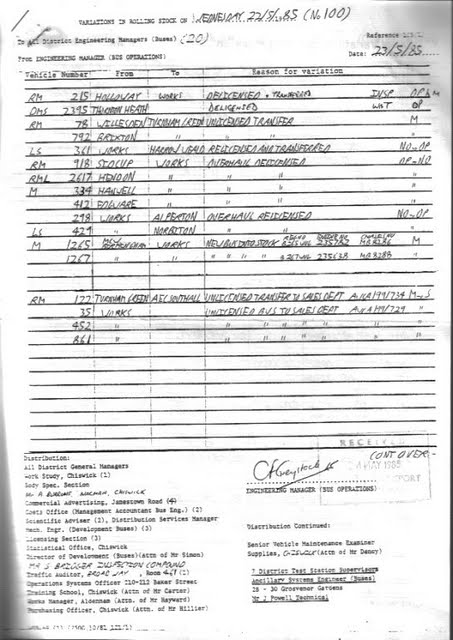 VARIATIONS IN ROLLING STOCK ON WEDNESDAY 22/5/85 (No 100)
To All District Engineering Managers (Buses) (20)
Reference
From ENGINEERING MANAGER (BUS OPERATIONS)
Date: 23/5/85
Vehicle Number From To Reason for variation
RM 215 HOLLOWAY WORKS DELICENSED + TRANSFERRED INSP
DMS 2395 THORNTON HEATH DELICENSED WDT OP
RM 78 WILLESDEN TURNHAM GREEN UNLICENSED TRANSFER M
792 BRIXTON " " " "
LS 361 WORKS HARROW WEALD RELICENSED AND TRANSFERRED NO-OP
RM 918 SIDCUP WORKS OVERHAUL DELICENSED OP-NO
RML 2617 HENDON " " " "
M 334 HANWELL " " " "
412 EDGWARE " " " "
298 WORKS ALPERTON OVERHAUL RELICENSED NO-OP
LS 429 " NORBITON " " "
M 1265 WORKS NEW BUS INTO STOCK 235782 MB8286 M
1267 " " " " " 235638 MB8288 "
RM 122 TURNHAM GREEN AEC SOUTHALL UNLICENSED TRANSFER TO SALES DEPT M-S
35 WORKS UNLICENSED BUS TO SALES DEPT "
452 " " " " " "
861 " " " " " "
RECEIVED
MAY 1985
CONT OVER-
Distribution:
All District General Managers
Work Study, Chiswick (1)
Body Spec. Section
CHISWICK
Commercial Advertising, Jamestown Road
Costs Office (Management Accountant Bus Eng.) (2)
Scientific Adviser (2), Distribution Services Manager
Mech. Engr. (Development Buses) (3)
Licensing Section (3)
Statistical Office, Chiswick
Director of Development (Buses) (Attn of Mr Simon)
MR S BRIDGER INSPECTION COMPOUND
Traffic Auditor, BROADWAY, Room
Operations Systems Officer 110-112 Baker Street
Training School, Chiswick (Attn of Mr Carter)
Works Manager, Aldenham (Attn. of Mr Hayward)
Purchasing Officer, Chiswick (Attn. of Mr Hillier)
ENGINEERING MANAGER (BUS OPERATIONS)
Distribution Continued:
Senior Vehicle Maintenance Examiner
Supplies, CHISWICK (Attn of Mr Dancy)
7 District Test Station Supervisors
Ancillary Systems Engineer (Buses)
28 - 30 Grosvenor Gardens
Mr J Powell Technical